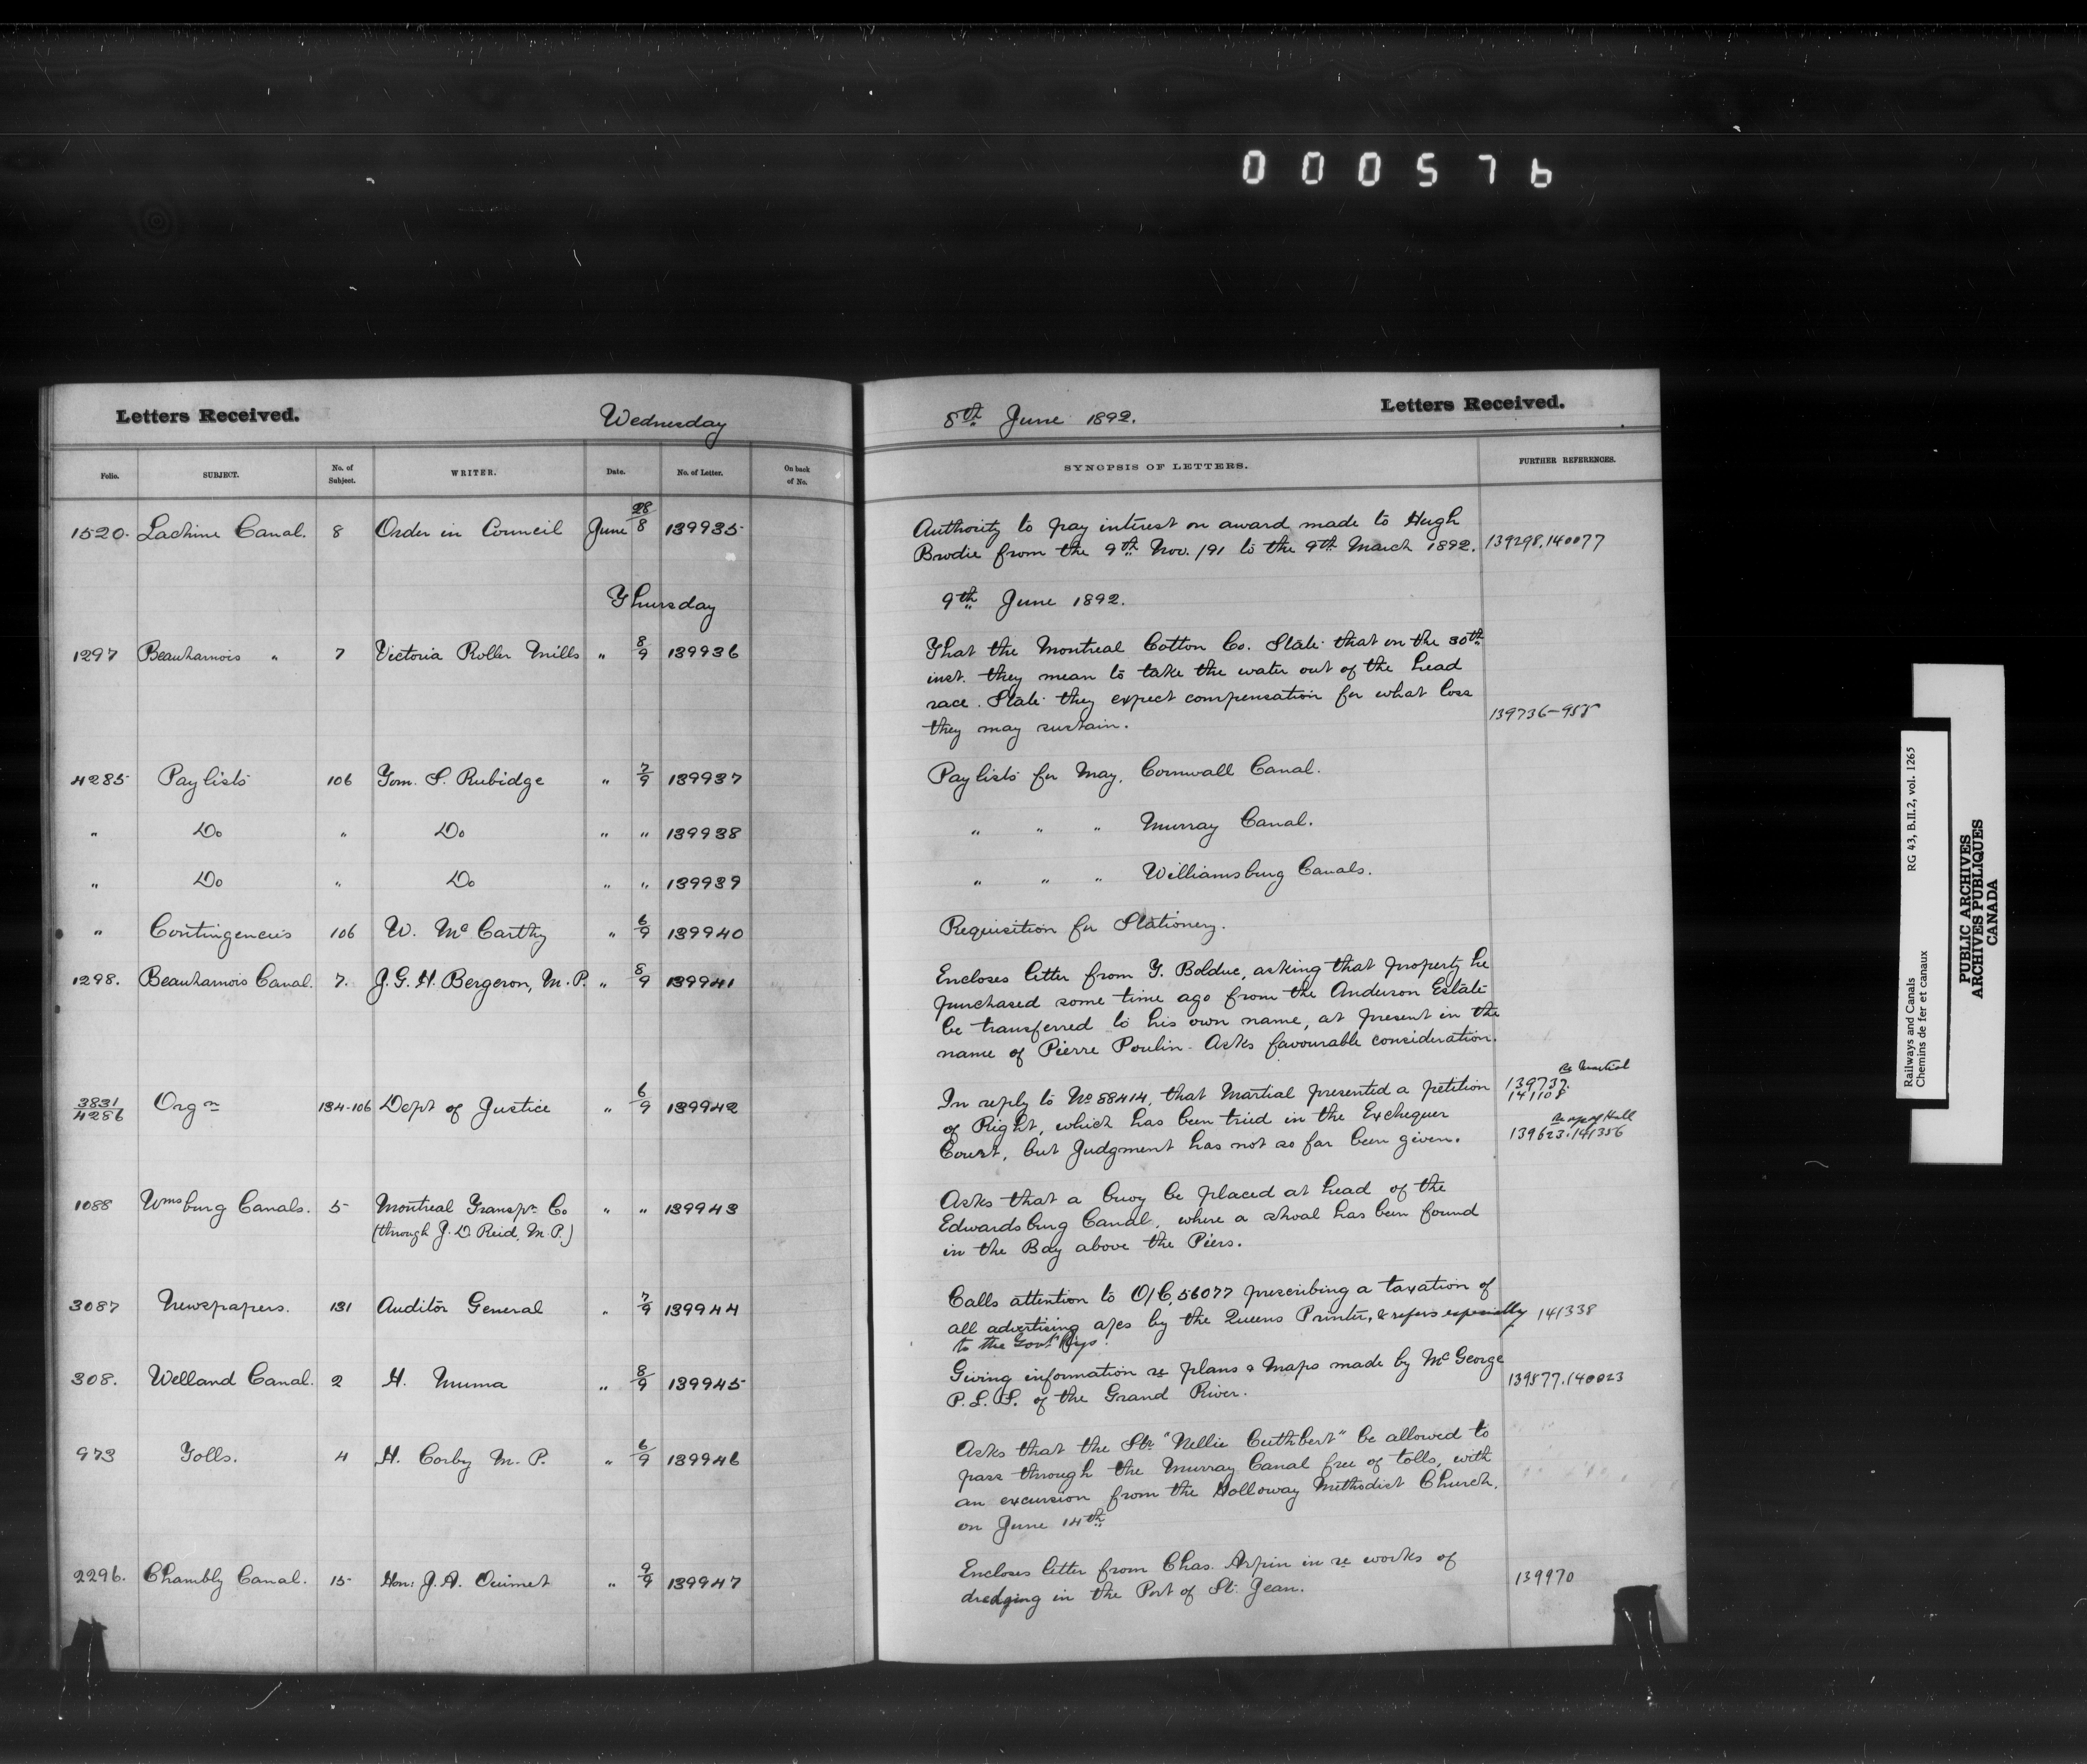 000576
Letters Received.
Wednesday
8th June 1892.
Letters Received.
Folio. SUBJECT. No. of Subject. WRITER. Date. No. of Letter. On back of No. SYNOPSIS OF LETTERS. FURTHER REFERENCES.
1520. Lachine Canal. 8 Order in Council June 28/8 139935 Authority to pay interest on award made to Hugh
Brodie from the 9th Nov. /91 to the 9th March 1892. 139298.140077
Thursday 9th June 1892.
1297 Beauharnois " 7 Victoria Roller Mills " 8/9 139936 That the Montreal Cotton Co. State that on the 30th
inst. they mean to take the water out of the head
race. State they expect compensation for what loss
they may sustain. 139736-958
4285 Paylists 106 Tom. S. Rubidge " 7/9 139937 Paylists for May, Cornwall Canal.
" Do " Do " " 139938 " " " Murray Canal.
" Do " Do " " 139939 " " " Williamsburg Canals.
" Contingencies 106 W. McCarthy " 6/9 139940 Requisition for Stationery.
1298. Beauharnois Canal. 7. J. G. H. Bergeron, M.P. " 8/9 139941 Encloses letter from T. Bolduc, asking that property he
purchased some time ago from the Anderson Estate
be transferred to his own name, at present in the
name of Pierre Poulin. Asks favourable consideration.
3831/4286 Orgn 134-106 Dept of Justice " 6/9 139942 In reply to No 88414, that Martial presented a petition
of Right, which has been tried in the Exchequer
Court, but Judgment has not so far been given.
Re Martial
139737.
141108
Hall
139623.141356
1088 Wmsburg Canals. 5 Montreal Transpn Co " " 139943 Asks that a buoy be placed at head of the
(through J. D. Reid, M.P.) Edwardsburg Canal, where a shoal has been found
in the Bay above the Piers.
3087 Newspapers. 131 Auditor General " 7/9 139944 Calls attention to O/C, 56077 prescribing a taxation of
all advertising a/cs by the Queens Printer, & refers especially 141338
to the Govt Rlys.
308. Welland Canal. 2 H. Muma " 8/9 139945 Giving information re plans & Maps made by McGeorge
P.L.S. of the Grand River. 139877.140023
973 Tolls. 4 H. Corby M.P. " 6/9 139946 Asks that the Str "Nellie Cuthbert" be allowed to
pass through the Murray Canal free of tolls, with
an excursion from the Holloway Methodist Church,
on June 14th
2296. Chambly Canal. 15 Hon: J. A. Ouimet " 9/9 139947 Encloses letter from Chas. Arpin in re works of
dredging in the Port of St. Jean. 139970
Railways and Canals RG 43, B.II.2, vol. 1265
Chemins de fer et canaux
PUBLIC ARCHIVES
ARCHIVES PUBLIQUES
CANADA